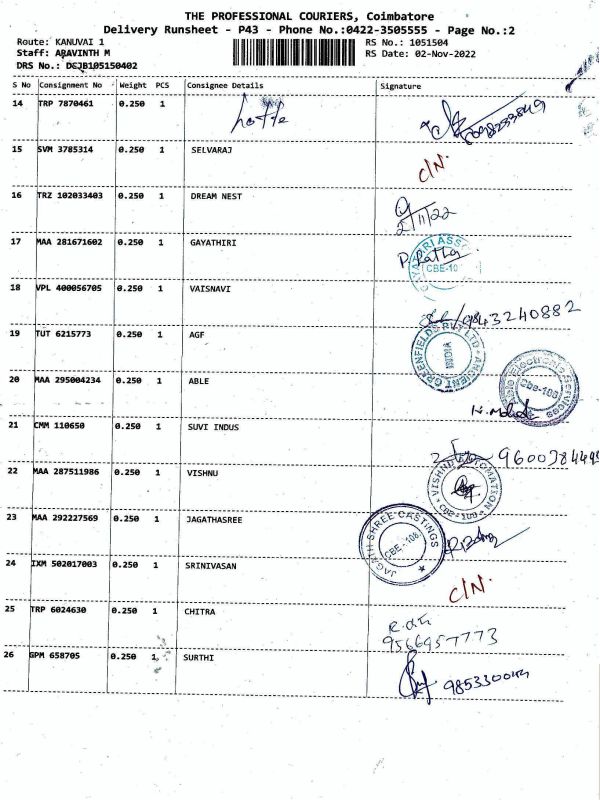 THE PROFESSIONAL COURIERS, Coimbatore
Delivery Runsheet - P43 - Phone No.:0422-3505555 - Page No.:2
Route: KANUVAI 1
Staff: ARAVINTH M
DRS No.: DSJB105150402
RS No.: 1051504
RS Date: 02-Nov-2022
S No Consignment No Weight PCS Consignee Details Signature
14 TRP 7870461 0.250 1
15 SVM 3785314 0.250 1 SELVARAJ C/N.
16 TRZ 102033403 0.250 1 DREAM NEST
2/11/22
17 MAA 281671602 0.250 1 GAYATHIRI
P. Ratha
CBE-10
18 VPL 400056705 0.250 1 VAISNAVI
9843240882
19 TUT 6215773 0.250 1 AGF
ANCIENT GREENFIELDS PVT LTD
INDIA
20 MAA 295004234 0.250 1 ABLE
Able Electronic Services
Cbe-108
21 CMM 110650 0.250 1 SUVI INDUS
22 MAA 287511986 0.250 1 VISHNU
VISHNU AUTOMATION
23 MAA 292227569 0.250 1 JAGATHASREE
JAGATH SHREE CASTINGS
CBE-108
24 IXM 502017003 0.250 1 SRINIVASAN
C/N.
25 TRP 6024630 0.250 1 CHITRA
9566957773
26 GPM 658705 0.250 1 SURTHI